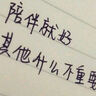 陪伴就好
其他什么不重要